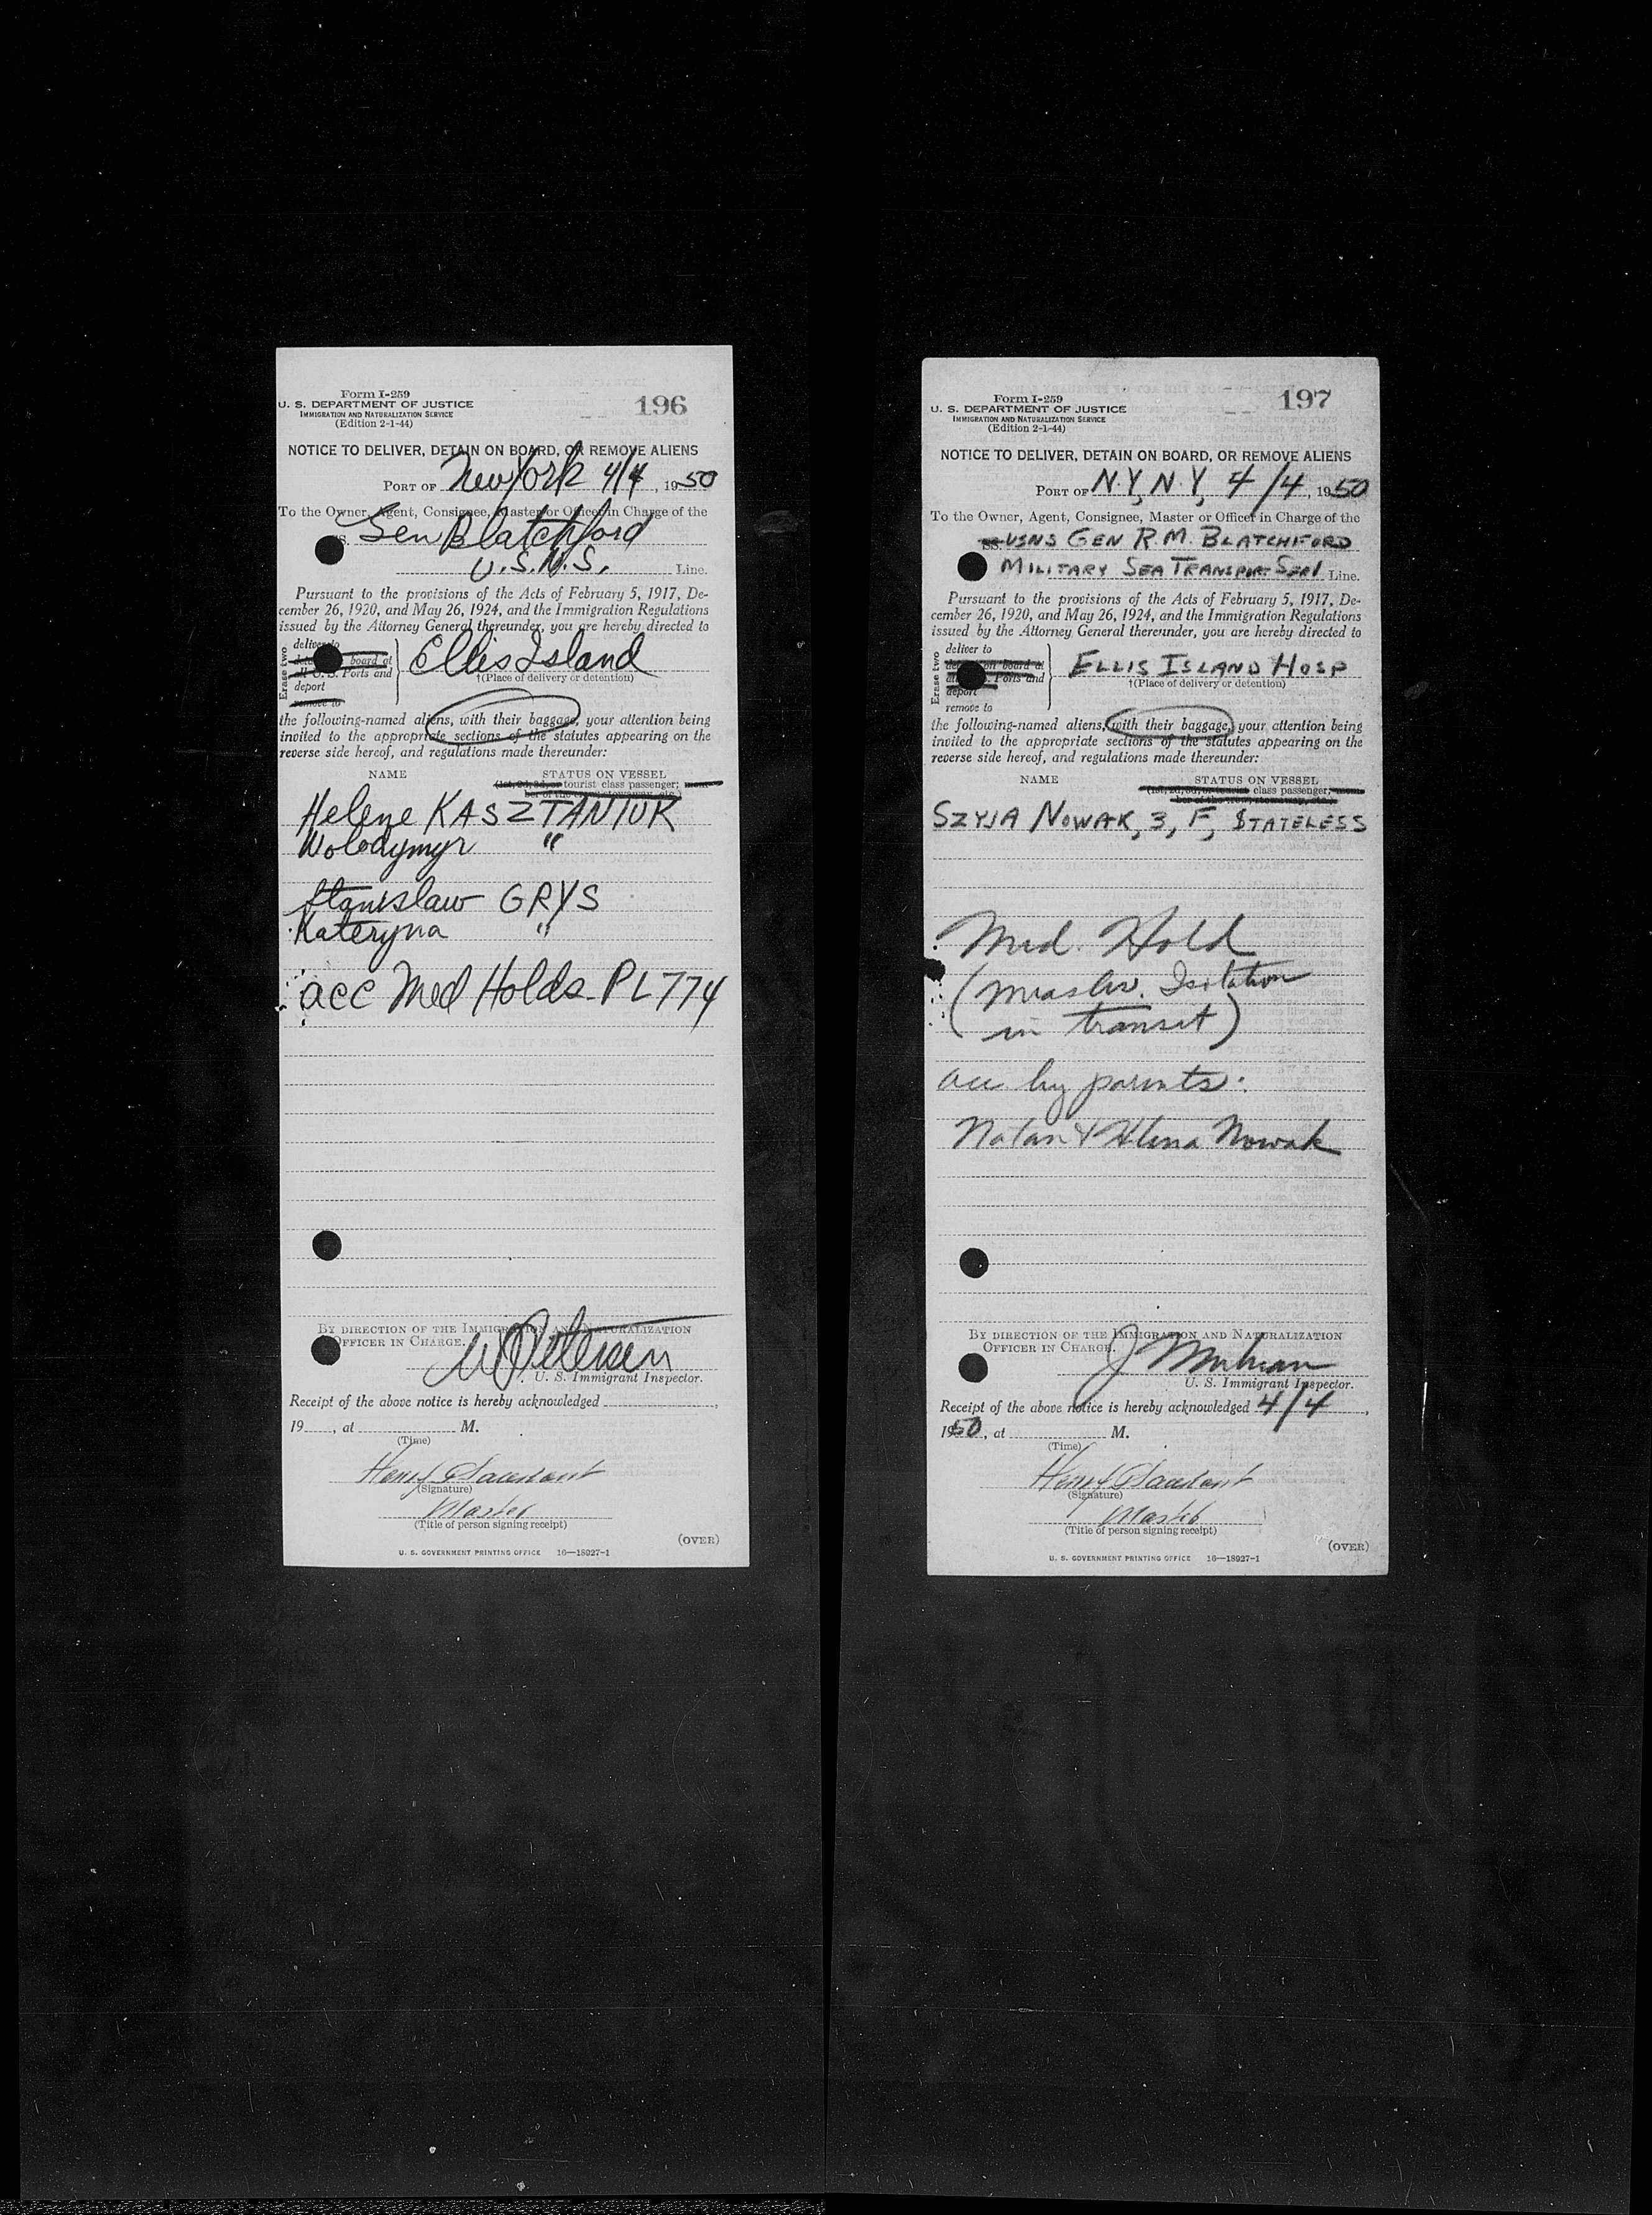 Form I-259
U. S. DEPARTMENT OF JUSTICE
IMMIGRATION AND NATURALIZATION SERVICE
(Edition 2-1-44)
196
NOTICE TO DELIVER, DETAIN ON BOARD, OR REMOVE ALIENS
PORT OF New York 4/4, 1950
To the Owner, Agent, Consignee, Master or Officer in Charge of the
Gen Blatchford
U.S.N.S. Line.
Pursuant to the provisions of the Acts of February 5, 1917, De-
cember 26, 1920, and May 26, 1924, and the Immigration Regulations
issued by the Attorney General thereunder, you are hereby directed to
Erase two
deliver to
board at
all U. S. Ports and
deport
remove to
Ellis Island
†(Place of delivery or detention)
the following-named aliens, with their baggage, your attention being
invited to the appropriate sections of the statutes appearing on the
reverse side hereof, and regulations made thereunder:
NAME STATUS ON VESSEL
(1st, 2d, 3d, or tourist class passenger; mem-
ber of the crew, stowaway, etc.)
Helene KASZTANIUK
Wolodymyr "
Stanislaw GRYS
Kateryna "
acc Med Holds PL 774
BY DIRECTION OF THE IMMIGRATION AND NATURALIZATION
OFFICER IN CHARGE.
Petersen
U. S. Immigrant Inspector.
Receipt of the above notice is hereby acknowledged
19 , at M.
(Time)
Henry
(Signature)
Master
(Title of person signing receipt)
(OVER)
U. S. GOVERNMENT PRINTING OFFICE 16—18927-1
Form I-259
U. S. DEPARTMENT OF JUSTICE
IMMIGRATION AND NATURALIZATION SERVICE
(Edition 2-1-44)
197
NOTICE TO DELIVER, DETAIN ON BOARD, OR REMOVE ALIENS
PORT OF N.Y, N.Y, 4/4, 1950
To the Owner, Agent, Consignee, Master or Officer in Charge of the
SS. USNS GEN R.M. BLATCHFORD
MILITARY SEA TRANSPORT SERV Line.
Pursuant to the provisions of the Acts of February 5, 1917, De-
cember 26, 1920, and May 26, 1924, and the Immigration Regulations
issued by the Attorney General thereunder, you are hereby directed to
Erase two
deliver to
detain on board at
all U. S. Ports and
deport
remove to
ELLIS ISLAND HOSP
†(Place of delivery or detention)
the following-named aliens, with their baggage, your attention being
invited to the appropriate sections of the statutes appearing on the
reverse side hereof, and regulations made thereunder:
NAME STATUS ON VESSEL
(1st, 2d, 3d, or tourist class passenger; mem-
ber of the crew, stowaway, etc.)
SZYJA NOWAK, 3, F, STATELESS
Med. Hold
(Measles. Isolation
in transit)
acc by parents:
Natan & Helena Nowak
BY DIRECTION OF THE IMMIGRATION AND NATURALIZATION
OFFICER IN CHARGE.
J
U. S. Immigrant Inspector.
Receipt of the above notice is hereby acknowledged 4/4,
1950, at M.
(Time)
Henry
(Signature)
Master
(Title of person signing receipt)
(OVER)
U. S. GOVERNMENT PRINTING OFFICE 16—18927-1